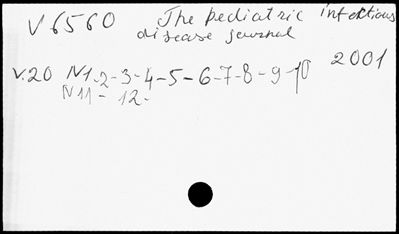 V6560 The pediatric infectious
disease journal
2001
V.20 N1-2-3-4-5-6-7-8-9-10
N11-12-